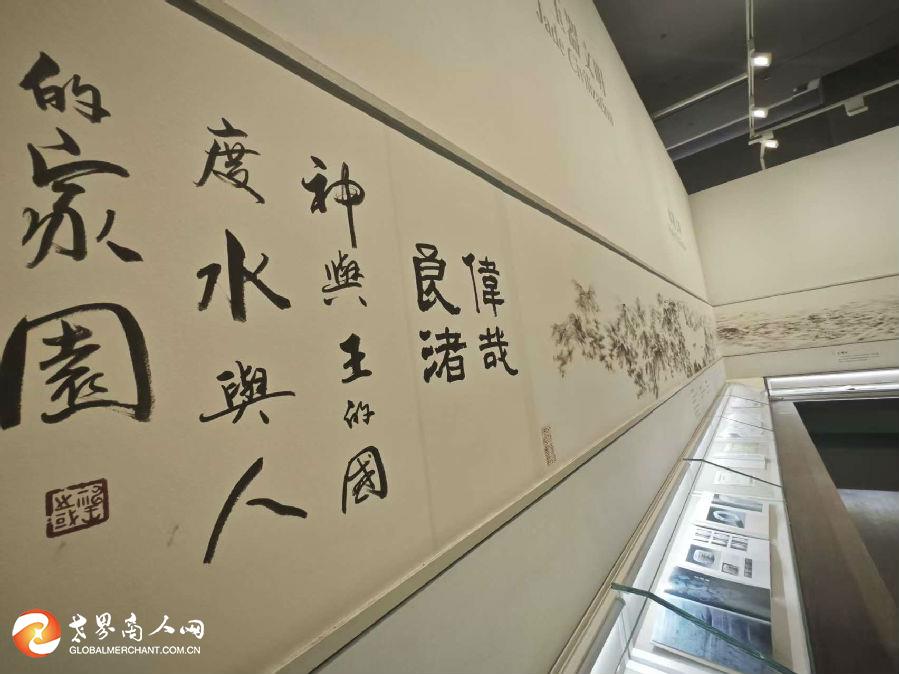 玉器文明
Jade Civilization
偉哉
良渚
神與王的國
度水與人
的家園
世界商人网
GLOBALMERCHANT.COM.CN